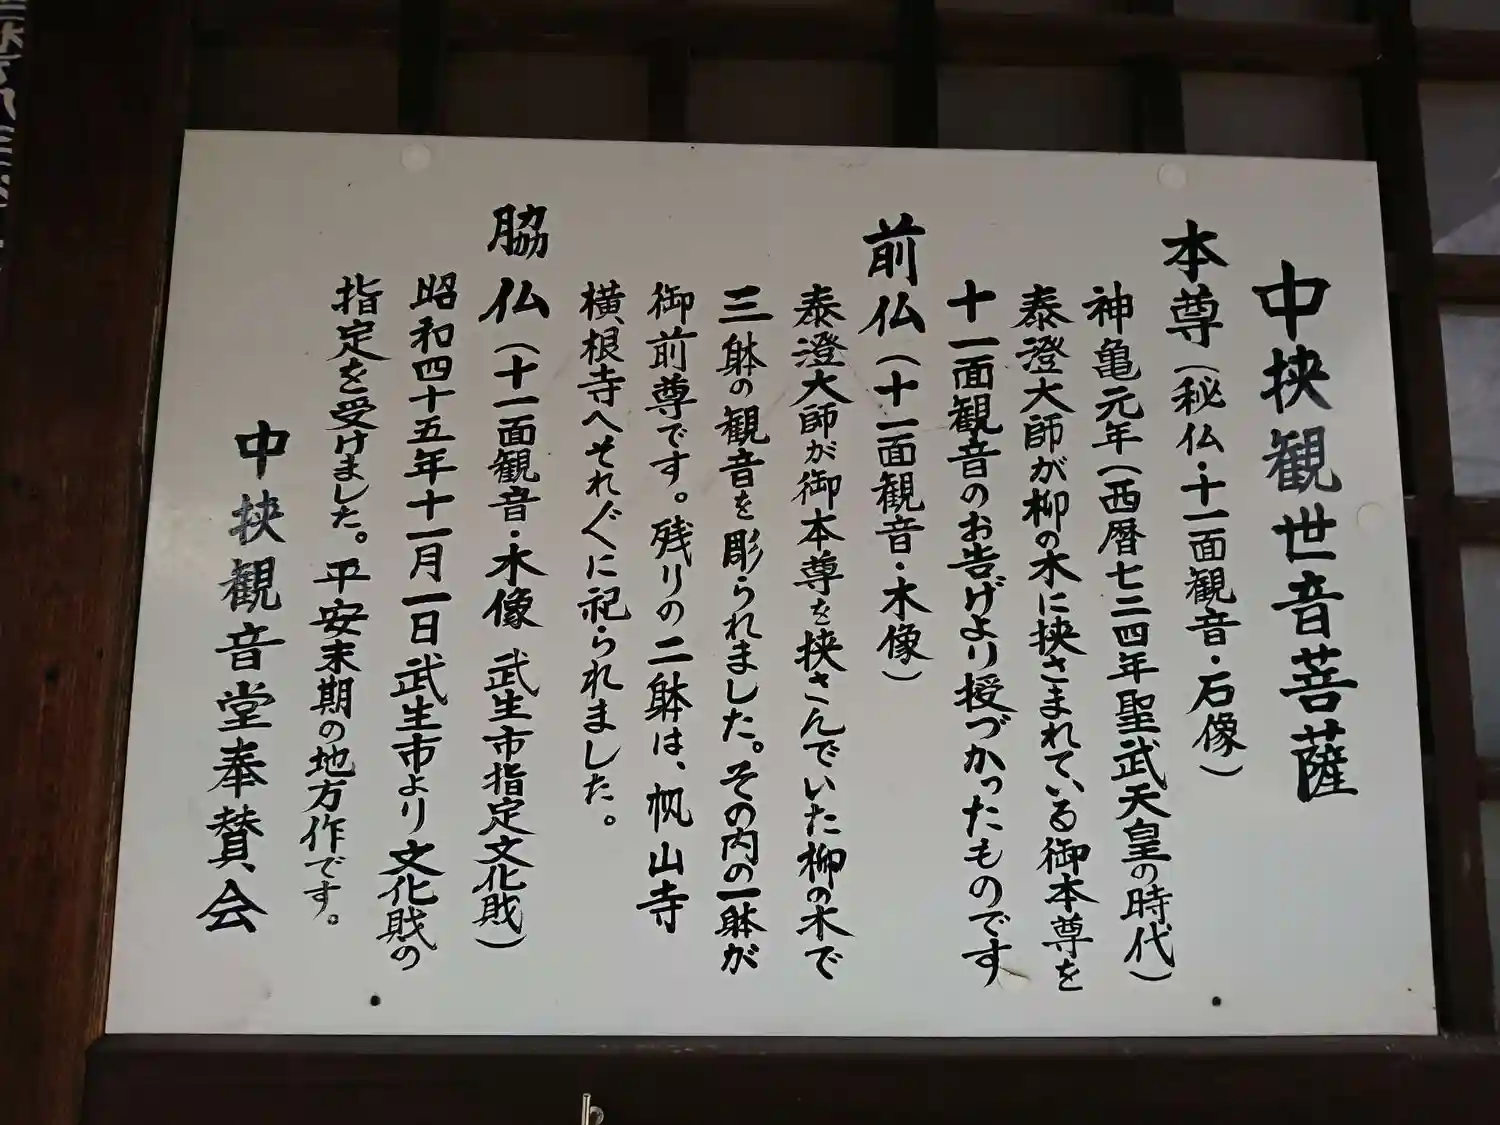 中挟観世音菩薩
本尊（秘仏・十一面観音・石像）
神亀元年（西暦七二四年聖武天皇の時代）
泰澄大師が柳の木に挟さまれている御本尊を
十一面観音のお告げより授づかったものです
前仏（十一面観音・木像）
泰澄大師が御本尊を挟さんでいた柳の木で
三躰の観音を彫られました。その内の一躰が
御前尊です。残りの二躰は、帆山寺
横根寺へそれ〲に祀られました。
脇仏（十一面観音・木像 武生市指定文化財）
昭和四十五年十一月一日武生市より文化財の
指定を受けました。平安末期の地方作です。
中挟観音堂奉賛会